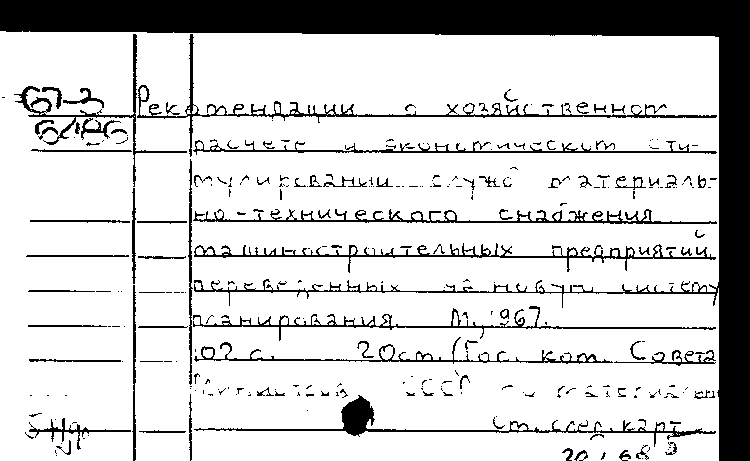 67-3 Рекомендации о хозяйственном
6486 расчете и экономическом сти-
мулировании служб материаль-
но-технического снабжения
машиностроительных предприятий,
переведенных на новую систему
планирования. М., 1967.
102 с. 20см. (Гос. ком. Совета
Министров СССР по материальн
См. след. карт